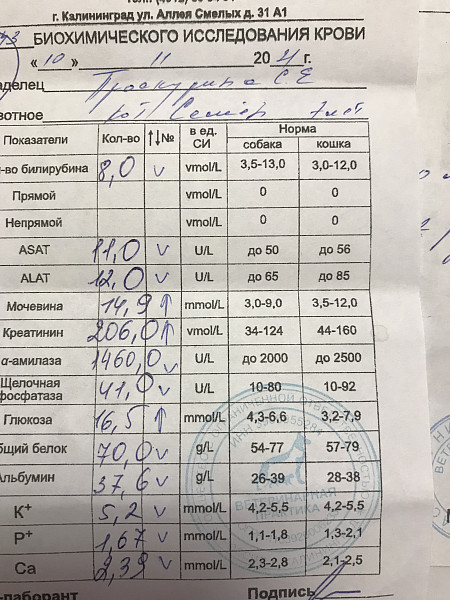 г. Калининград ул. Аллея Смелых д. 31 А1
БИОХИМИЧЕСКОГО ИССЛЕДОВАНИЯ КРОВИ
« 10 » 11 2021 г.
аделец Проскурина С.Е
вотное кот Семён 7 лет
Показатели Кол-во ↑↓№ в ед. СИ Норма
собака кошка
-во билирубина 8,0 v vmol/L 3,5-13,0 3,0-12,0
Прямой vmol/L 0 0
Непрямой vmol/L 0 0
ASAT 11,0 v U/L до 50 до 56
ALAT 12,0 v U/L до 65 до 85
Мочевина 14,9 ↑ mmol/L 3,0-9,0 3,5-12,0
Креатинин 206,0 ↑ vmol/L 34-124 44-160
α-амилаза 1460,0 v U/L до 2000 до 2500
Щелочная фосфатаза 41,0 v U/L 10-80 10-92
Глюкоза 16,5 ↑ mmol/L 4,3-6,6 3,2-7,9
бщий белок 70,0 v g/L 54-77 57-79
Альбумин 37,6 v g/L 26-39 28-38
K⁺ 5,2 v mmol/L 4,2-5,5 4,2-5,5
P⁺ 1,67 v mmol/L 1,1-1,8 1,3-2,1
Ca 2,39 v mmol/L 2,3-2,8 2,1-2,5
-лаборант Подпись
ВЕТЕРИНАРНАЯ
ПРАКТИКА